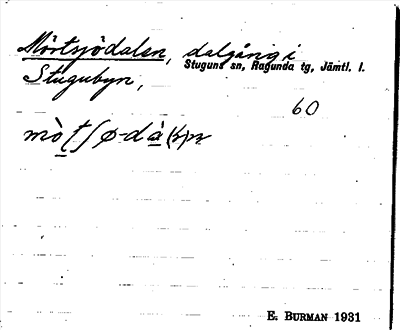 Mörtsjödalen, dalgång i
Stuguns sn, Ragunda tg, Jämtl. l.
Stugubyn,
60
E. BURMAN 1931